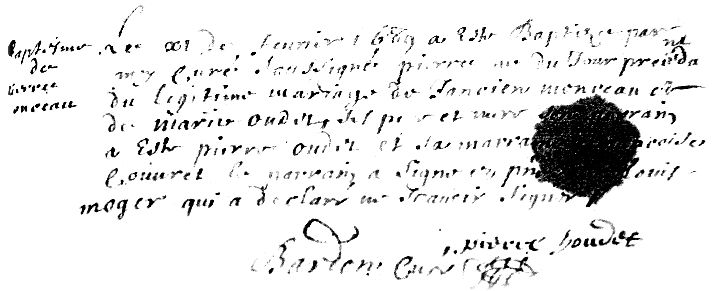 Baptesme
de
pierre
moneau
Le xi de feurier 1689 a Esté Baptizé par
moy Curé soussigné pierre né du Jour
du légitime mariage de moneau et
de marie oudet, ses pe e et mere
a Esté pierre oudet et sa marraine
Couuret le parrain a signé en Louis
moger qui a declaré ne scauoir signer
pierre houdet
Curé